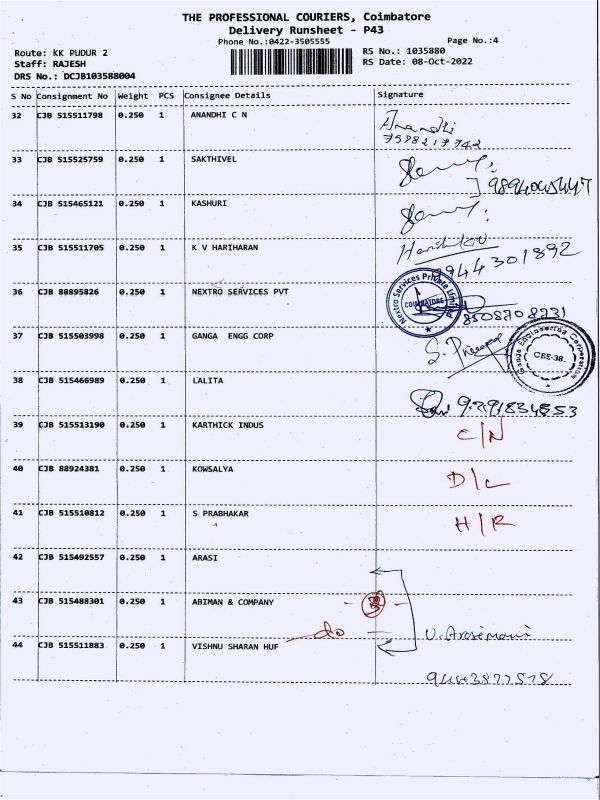 THE PROFESSIONAL COURIERS, Coimbatore
Delivery Runsheet - P43
Phone No.:0422-3505555 Page No.:4
Route: KK PUDUR 2 RS No.: 1035880
Staff: RAJESH RS Date: 08-Oct-2022
DRS No.: DCJB103588004
S No Consignment No Weight PCS Consignee Details Signature
32 CJB 515511798 0.250 1 ANANDHI C N Anandhi
7598217742
33 CJB 515525759 0.250 1 SAKTHIVEL
34 CJB 515465121 0.250 1 KASHURI
35 CJB 515511705 0.250 1 K V HARIHARAN
9944301892
36 CJB 88895826 0.250 1 NEXTRO SERVICES PVT Nextro Services Private Limited COIMBATORE
8508708231
37 CJB 515503998 0.250 1 GANGA ENGG CORP Ganga Engineering Corporation CBE-38.
38 CJB 515466989 0.250 1 LALITA
39 CJB 515513190 0.250 1 KARTHICK INDUS C/N
40 CJB 88924381 0.250 1 KOWSALYA D/L
41 CJB 515510812 0.250 1 S PRABHAKAR H/R
42 CJB 515492557 0.250 1 ARASI
43 CJB 515488301 0.250 1 ABIMAN & COMPANY
do
44 CJB 515511883 0.250 1 VISHNU SHARAN HUF